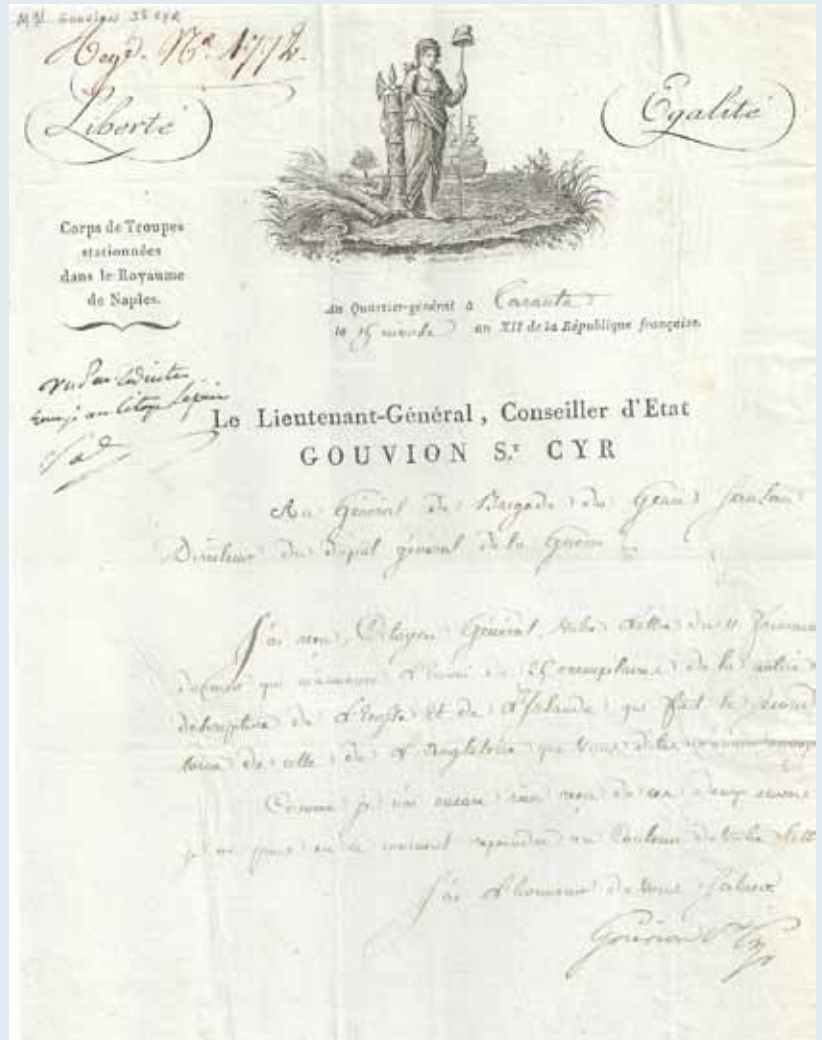 Mal Gouvion St CYR
Liberté
Egalité
Corps de Troupes
stationnées
dans le Royaume
de Naples.
Au Quartier-général à
le 15 nivôse an XII de la République française.
Le Lieutenant-Général, Conseiller d'Etat
GOUVION S.T CYR
Au Général de Brigade du Génie
Directeur du dépôt général de la Guerre
J'ai reçu, Citoyen Général, votre lettre du 11 frimaire
qui m'annonce l'envoi de 25 exemplaires de la notice
descriptive de l'Ecosse et de l'Irlande qui fait le second
de celle de l'Angleterre que vous
Comme je n'ai encore rien reçu de ces deux envois
je ne puis en ce moment répondre au contenu de votre lettre
J'ai l'honneur de vous saluer
Gouvion St Cyr